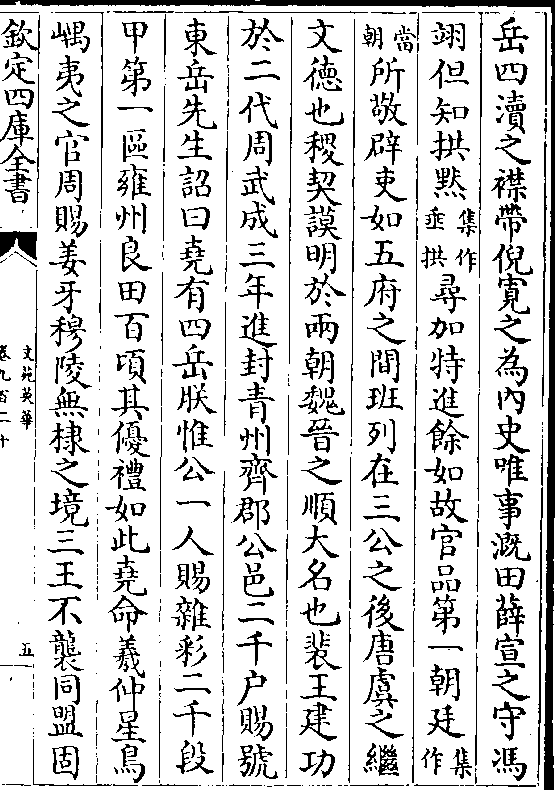 岳四瀆之襟帶倪寛之為内史唯事溉田薛宣之守馮
翊但知拱黙集作垂拱尋加特進餘如故官品第一朝廷集作
當朝所敬辟吏如五府之間班列在三公之後唐虞之繼
文德也稷契謨明於兩朝魏晉之順大名也裴王建功
於二代周武成三年進封青州齊郡公邑二千户賜號
東岳先生詔曰堯有四岳朕惟公一人賜雜彩二千段
甲第一區雍州良田百頃其優禮如此堯命羲仲星鳥
嵎夷之官周賜姜牙穆陵無棣之境三王不襲同盟固
欽定四庫全書
文苑英華
卷九百二十
五